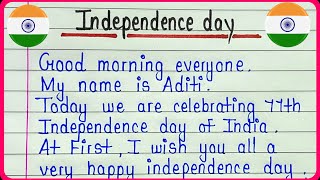 Independence day
Good morning everyone.
My name is Aditi.
Today we are celebrating 77th
Independence day of India.
At First, I wish you all a
very happy independence day.